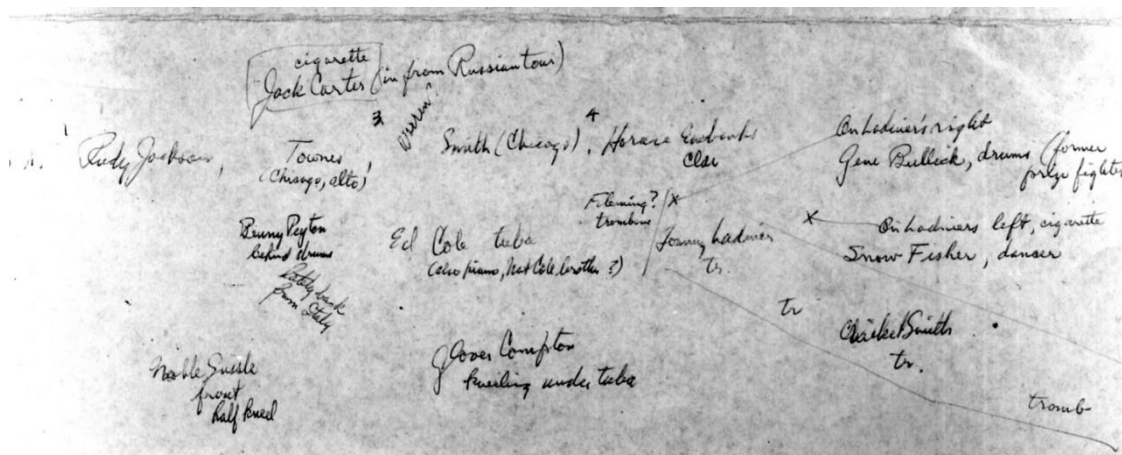 cigarette
Jack Carter (in from Russian tour)
3
4
Rudy Jackson,
Townes
(Chicago, alto)
Smith (Chicago).
Horace
Clar
On Ladniers right
Gene Bullick, drums (former
prize fighter
Benny Peyton
behind drums
Lately back
from Italy
Ed Cole tuba
(also piano, Nat Cole, brother?)
Fleming?
trombone
x
Tommy Ladnier
tr.
x
On Ladniers left, cigarette
Snow Fisher, dancer
tr
Smith
tr.
Noble Sissle
front
half kneel
Glover Compton
kneiling under tuba
tromb-